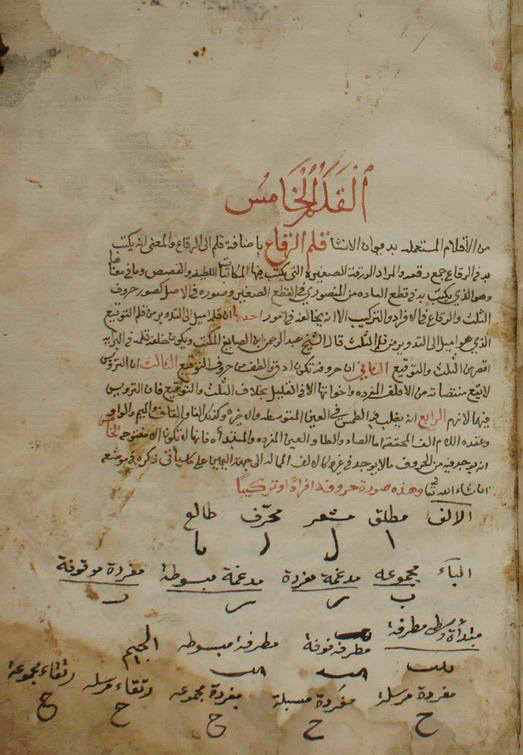 القلم الخامس
من الاقلام المستعمله بديوان الانشا قلم الرقاع باضافة قلم الى الرقاع والمعنى انه يكتب
به في الرقاع جمع رقعه والمراد الورقة الصغيره التي يكتب فيها المكاتبات اللطيفه والقصص وما في معناها
وهو الذي يكتب به في قطع العاده من المنصوري والقطع الصغير وصوره في الاصل كصور حروف
الثلث والرقاع في الافراد والتركيب الا انه يخالفه في امور احدها ان قلمه اميل الى التدوير من قلم التوقيع
الذي هو اميل الى التدوير من قلم الثلث قال الشيخ عبد الرحمن ابن الصايغ المكتب ويكون جلفة قلمه في البرايه
اقصر من الثلث والتوقيع الثاني ان حروفه تكون ادق والطف من حروف التوقيع الثالث ان الترويس
لا يقع في منتصباته من الالف المفرده واخواتها الا في القليل بخلاف الثلث والتوقيع فان الترويس
فيها لازم الرابع انه يغلب فيه الطمس في العين المتوسطه والاخيره وكذلك الفا والقاف والميم والواو
وعقدة اللام الف المحققة اما الصاد والطا والعين المفرده والمبتدأه فانها لا تكون الا مفتوحه الخامس
انه يوجد فيه من الحروف ما لا يوجد في غيره كالالف الماله الى جهة اليمين على ما سيأتي ذكره في موضعه
ان شاء الله تعالى وهذه صورة حروفه افرادا وتركيبا
الالف مطلق مشعر محرف طالع
الباء مجموعه مدغمة مفردة مدغمة مبسوطة مفردة موقوفة
مبتدأة وسطى مطرفة مطرفة موقوفة مطرفة مبسوطه الجيم
مفردة مرسلة مفردة مسبلة مفردة مجموعه رتقاء مرسله رتقاء مجموعة
ح ح ح ح ح